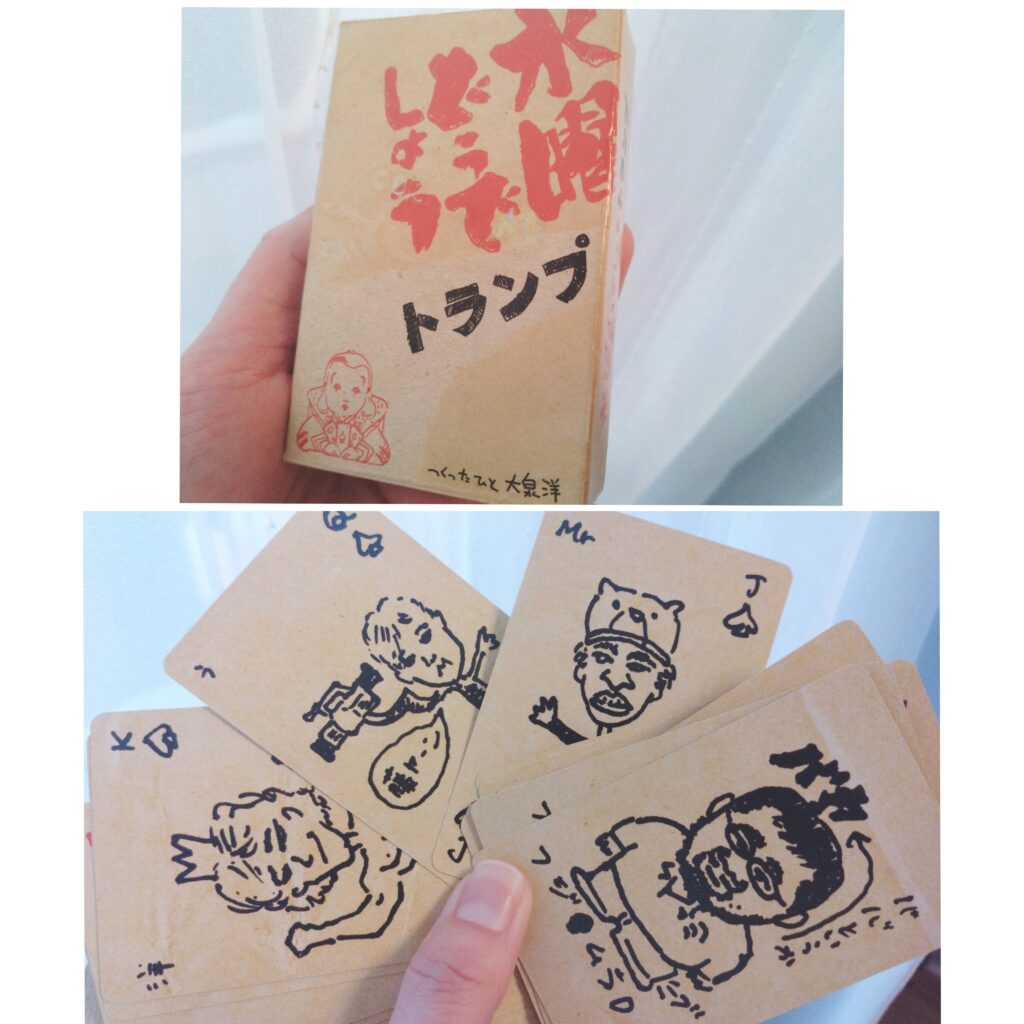 水曜
どうで
しょう
トランプ
つくったひと 大泉洋
Q
Mr
J
K
洋